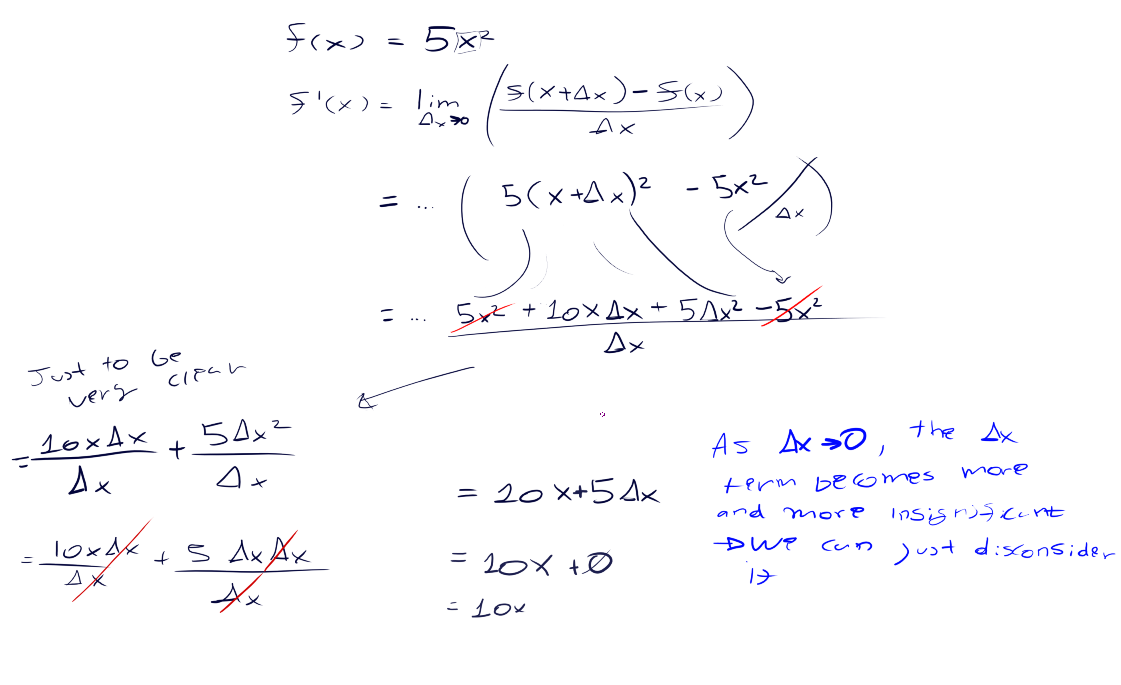 f(x) = 5x²
f'(x) = lim Δx→0 ( f(x+Δx) - f(x) / Δx )
= ... ( 5(x+Δx)² - 5x² / Δx )
= ... 5x² + 10xΔx + 5Δx² - 5x² / Δx
Just to be
very clear
= 10xΔx / Δx + 5Δx² / Δx
= 10xΔx / Δx + 5 ΔxΔx / Δx
= 10x+5Δx
= 10x +0
= 10x
As Δx→0, the Δx
term becomes more
and more insignificant
→ We can just disconsider
it